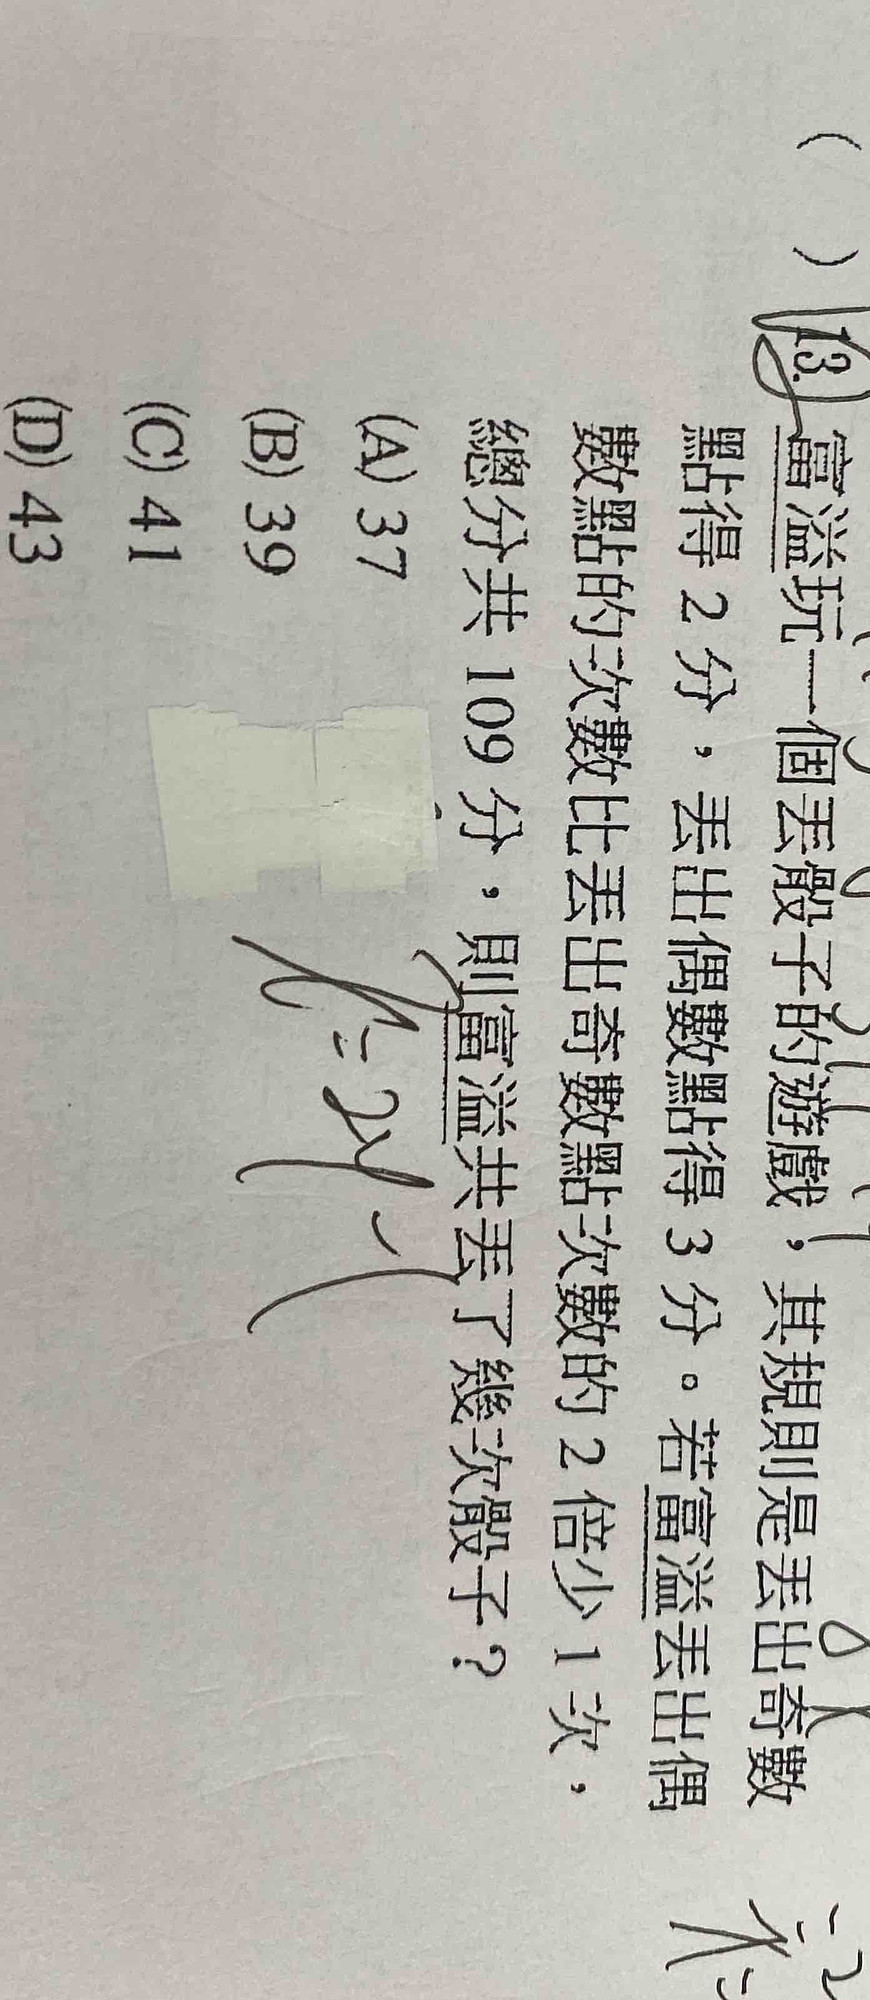 ( ) 13. 富溢玩一個丟骰子的遊戲，其規則是丟出奇數
點得 2 分，丟出偶數點得 3 分。若富溢丟出偶
數點的次數比丟出奇數點次數的 2 倍少 1 次，
總分共 109 分，則富溢共丟了幾次骰子？
(A) 37
(B) 39
(C) 41
(D) 43